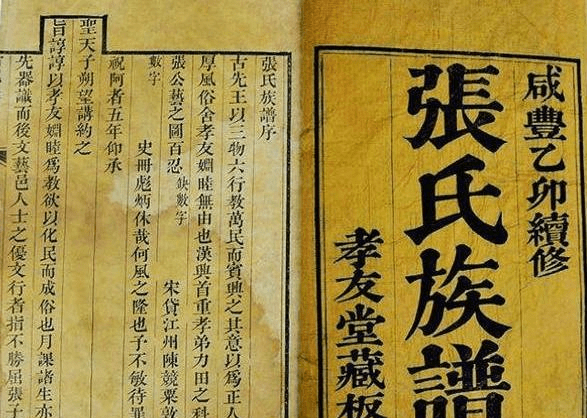 咸豐乙卯續修
張氏族譜
孝友堂藏板
張氏族譜序
古先王以三物六行教萬民而賓興之其意以為正人
厚風俗舍孝友婣睦無由也漢興首重孝弟力田之科
張公藝之圖百忍缺數字宋貸江州陳競粟敦
數字史冊彪炳休哉何風之隆也予不敏待罪
祝阿者五年仰承
聖天子朔望講約之
旨諄諄以孝友婣睦為教欲以化民而成俗也月課諸生亦
先器識而後文藝邑人士之優文行者指不勝屈張子